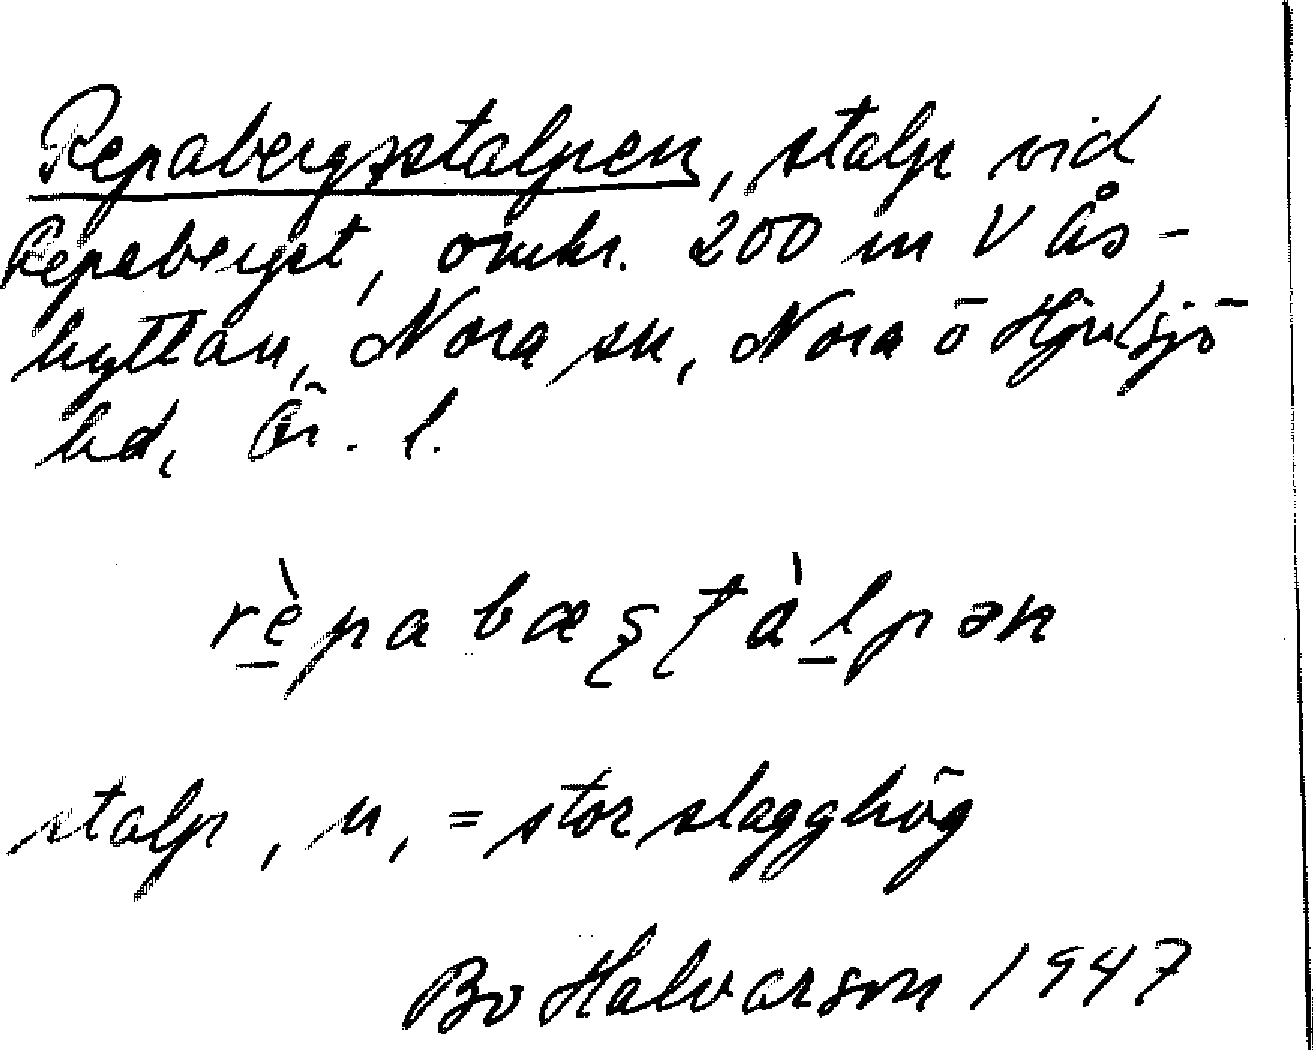 Repabergsstalpen, stalp vid
Repaberget, omkr. 200 m V Ås-
hyttan, Nora sn, Nora o Hjulsjö
hd, Ör. l.
rèpabæʂʈàlpən
stalp, n, = stor slagghög
Bo Halvarson 1947